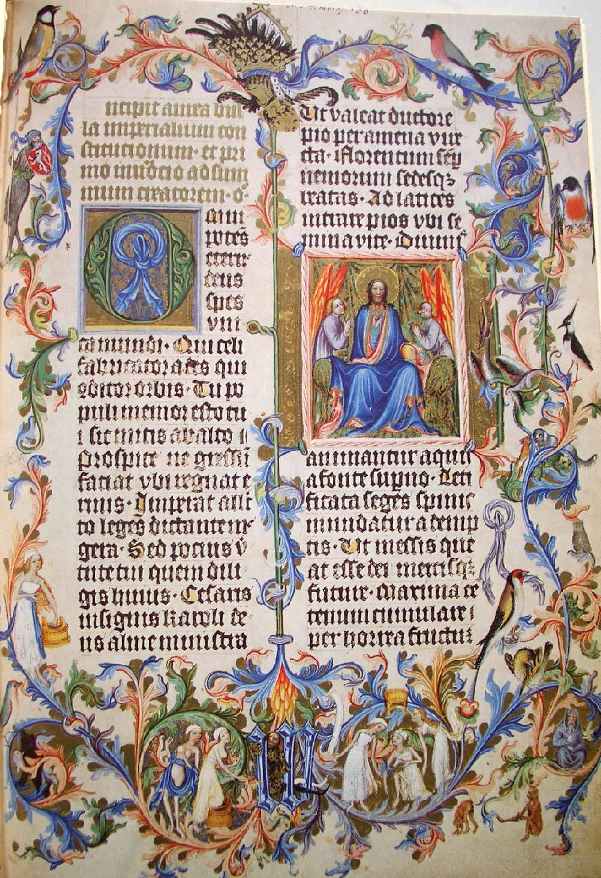 ncipit aurea bul
la imperialium con
stitucionum · et pri
mo inuocacio ad sum
mum creatorem · O
mni
potēs
eterne
deus
spes
vni
ca mundi · Qui celi
fabricator ades qui
ꝯditor orbis · Tu po
puli memor esto tu
i sic mitis ab alto
prospice ne gressū
faciat vbi regnat e
rinis · Imperat alle
to leges dictante me
gera · Sed pocius v̄
tute tui quem dili
gis huius · Cesaris
insignis karoli de
us alme ministra
Ut valeat ductore
pio per amena vire
ta · Florentum semp̄
nemorum sedesqꝫ
beatas · Ad latices
intrare pios vbi se
mina vite · diuinis
animantur aquis
a fonte supno · leti
ficata seges spinis
mundatur ademp
tis · Ut messis que
at esse dei mercisqꝫ
future · Maxima ce
tenum cumulare
per horrea fructum